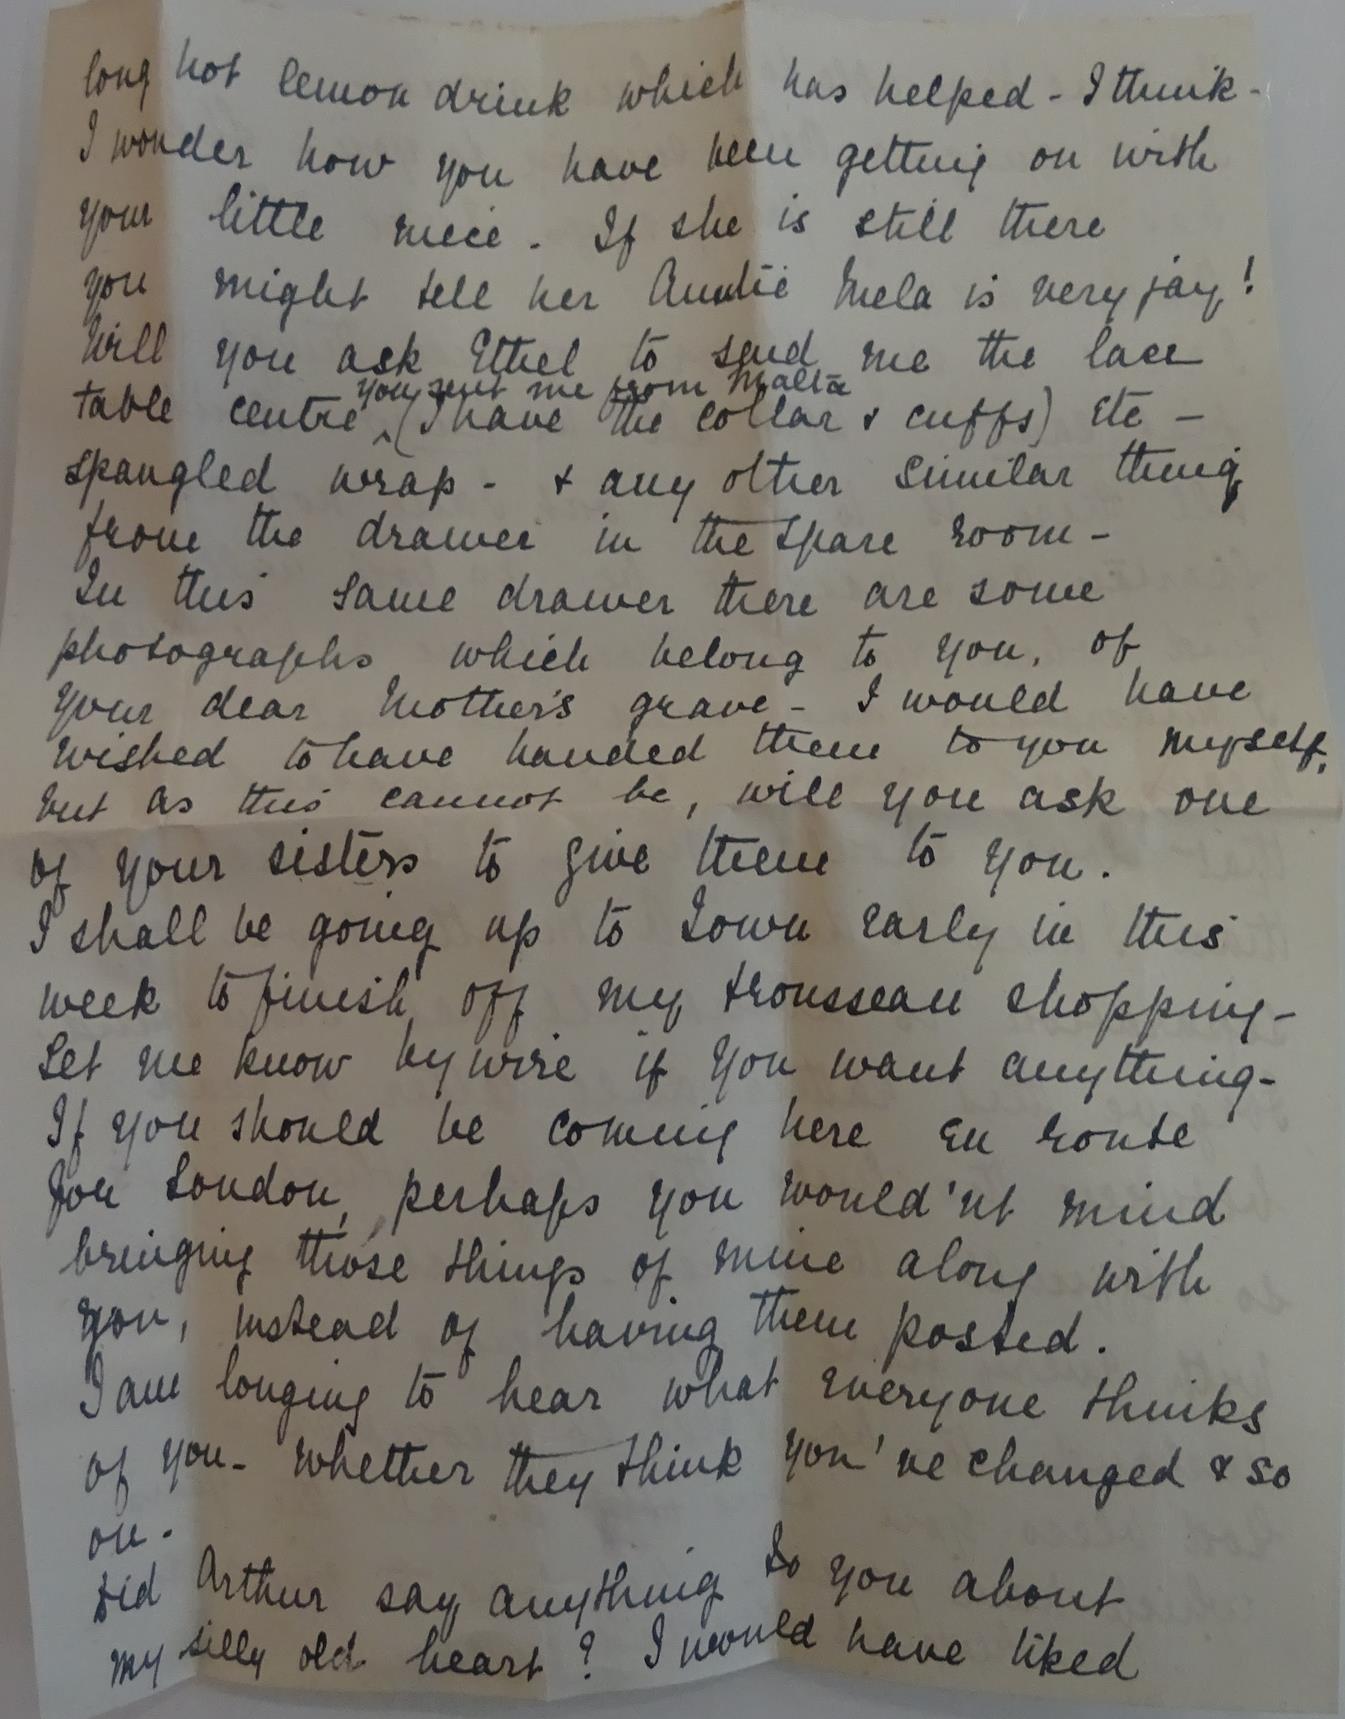 long hot lemon drink which has helped - I think -
I wonder how you have been getting on with
your little niece - If she is still there
you might tell her Auntie Mela is very jay!
Will you ask Ethel to send me the lace
you sent me from Malta
table centre ^ (I have the collar & cuffs) etc -
spangled wrap - & any other similar thing
from the drawer in the spare room -
In this same drawer there are some
photographs which belong to you, of
your dear Mother's grave - I would have
wished to have handed them to you myself,
but as this cannot be, will you ask one
of your sisters to give them to you.
I shall be going up to Town early in this
week to finish off my trousseau shopping -
Let me know by wire if you want anything -
If you should be coming here en route
for London, perhaps you would'nt mind
bringing those things of mine along with
you, instead of having them posted.
I am longing to hear what everyone thinks
of you - whether they think you've changed & so
on -
Did Arthur say anything to you about
my silly old heart? I would have liked